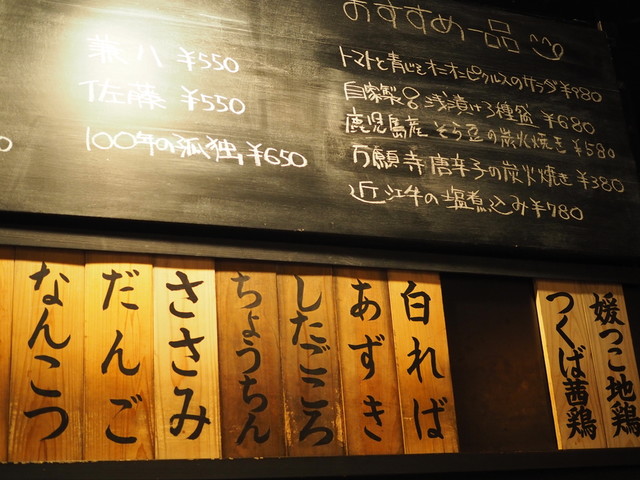 おすすめ一品
トマトと青じそオニオンピクルスのサラダ ¥980
自家製 浅漬け3種盆 ¥680
鹿児島産 そら豆の炭火焼き ¥580
万願寺唐辛子の炭火焼き ¥380
近江牛の塩煮込み ¥780
兼八 ¥550
佐藤 ¥550
100年の孤独 ¥650
媛っこ地鶏
つくば茜鶏
白ればー
あずき
したごころ
ちょうちん
ささみ
だんご
なんこつ